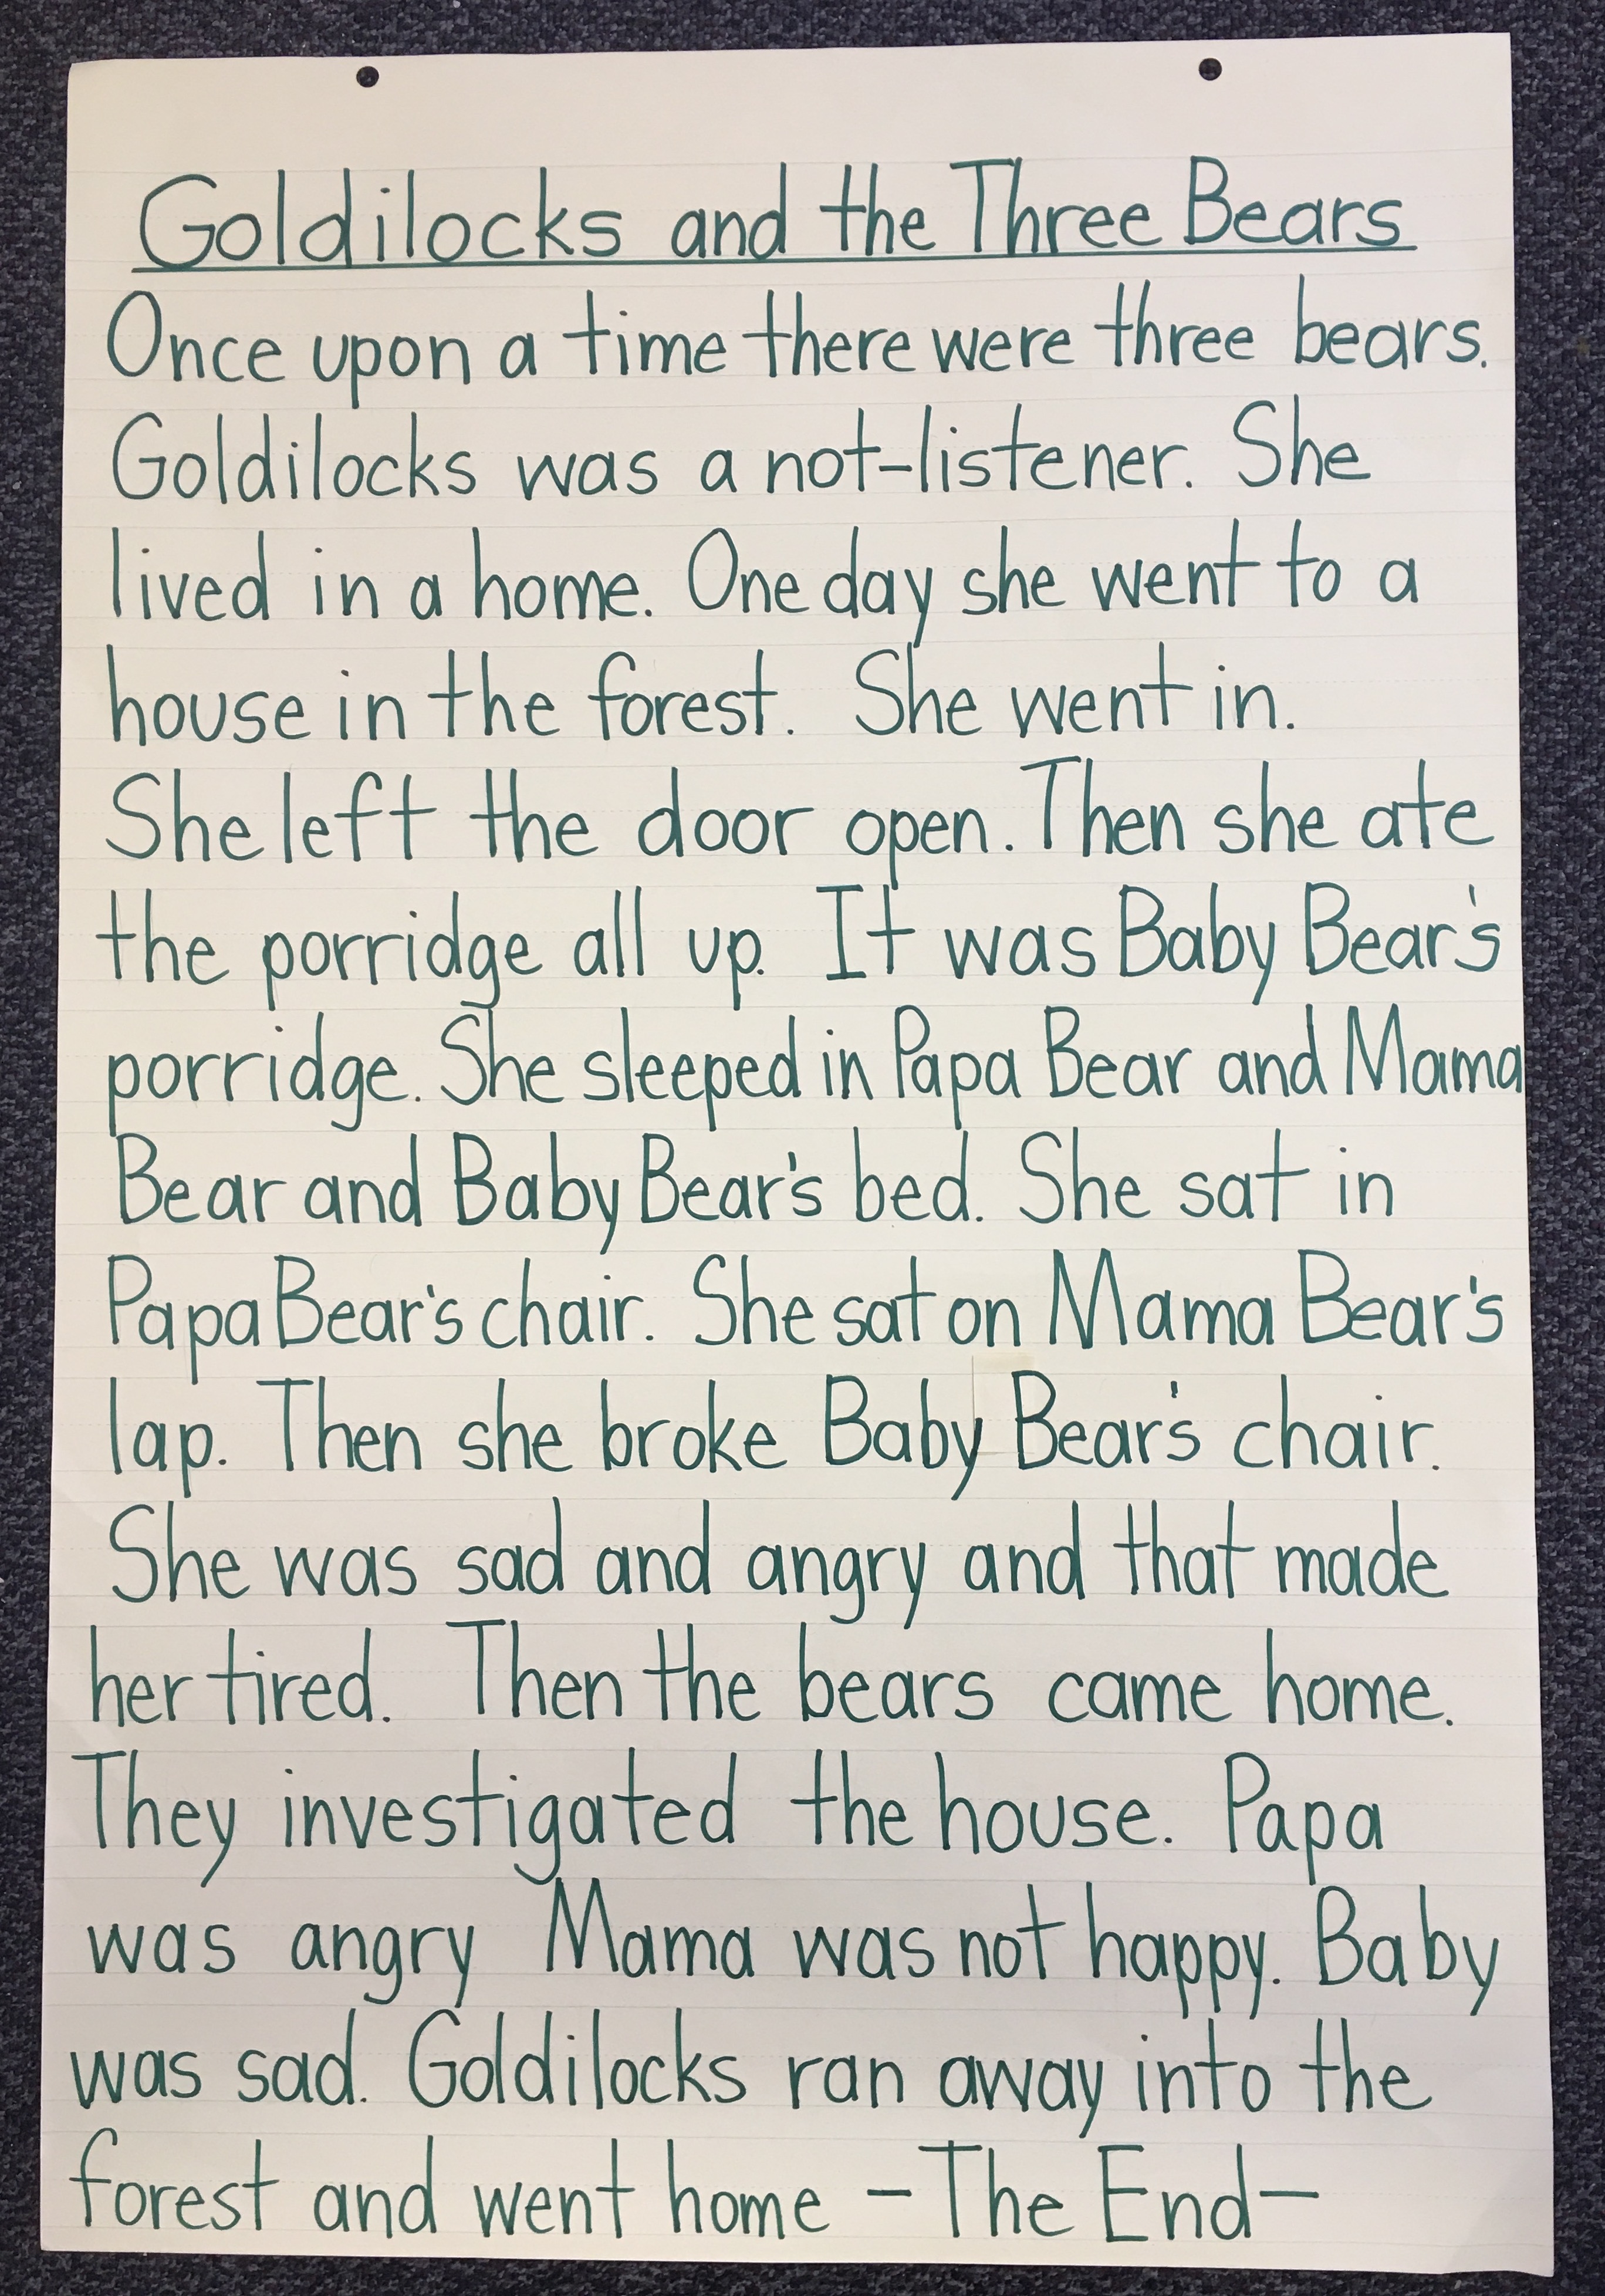 Goldilocks and the Three Bears
Once upon a time there were three bears.
Goldilocks was a not-listener. She
lived in a home. One day she went to a
house in the forest. She went in.
She left the door open. Then she ate
the porridge all up. It was Baby Bear's
porridge. She sleeped in Papa Bear and Mama
Bear and Baby Bear's bed. She sat in
Papa Bear's chair. She sat on Mama Bear's
lap. Then she broke Baby Bear's chair.
She was sad and angry and that made
her tired. Then the bears came home.
They investigated the house. Papa
was angry Mama was not happy. Baby
was sad. Goldilocks ran away into the
forest and went home - The End-